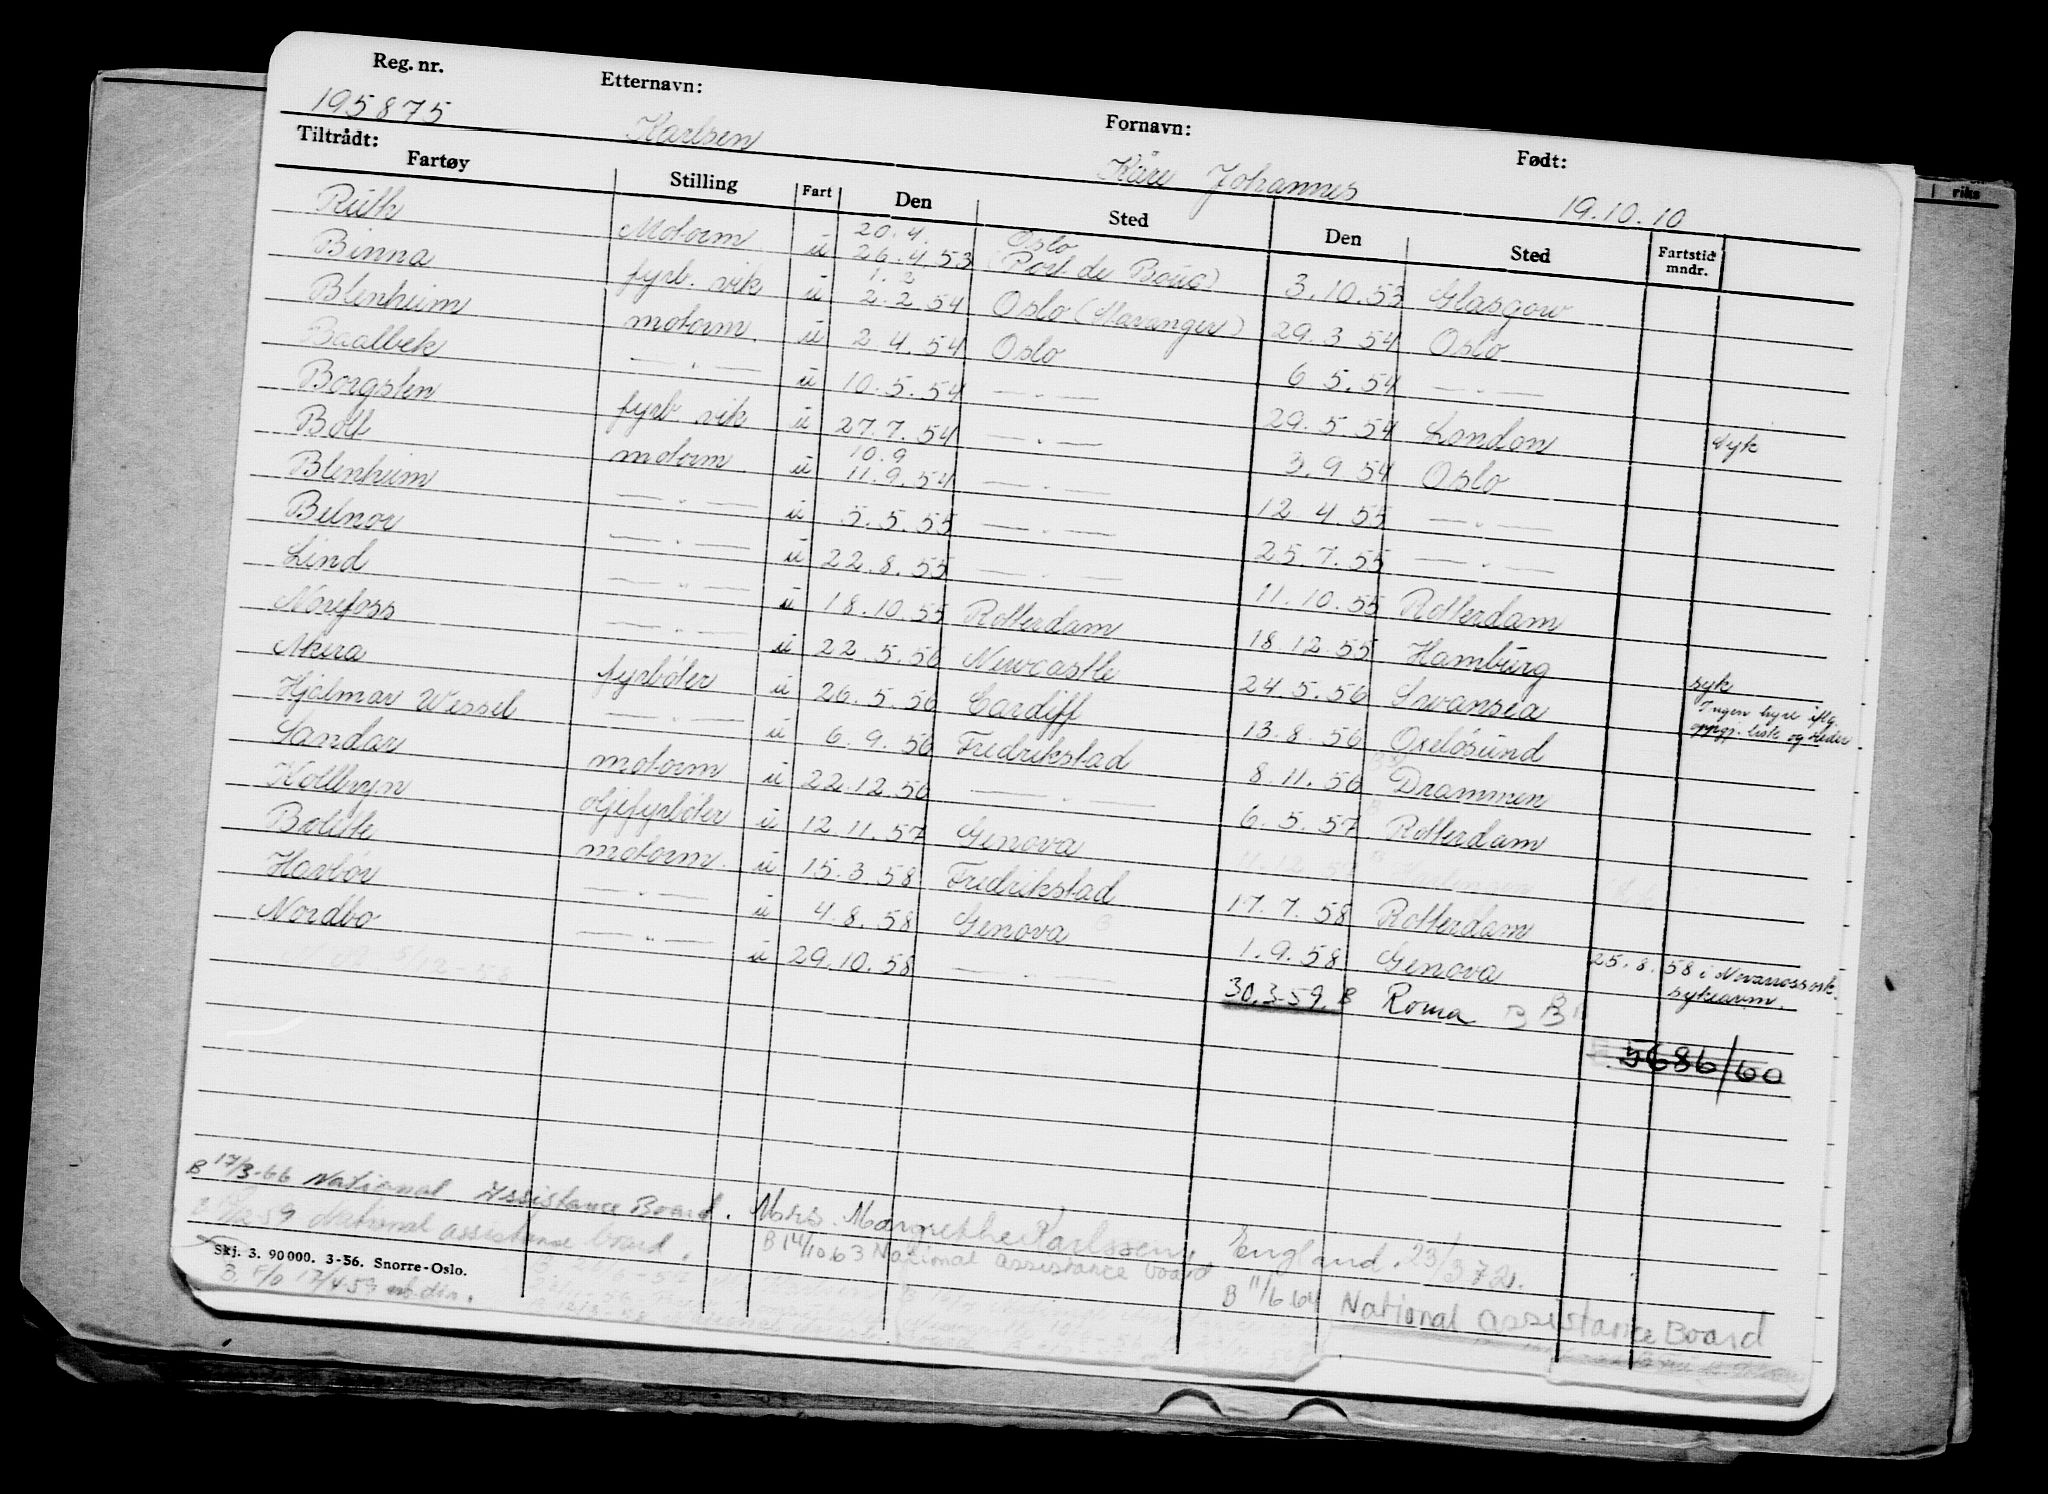 Reg. nr. Etternavn: Fornavn: Født:
195875 Karlsen Kåre Johannes 19.10.10
Tiltrådt:
Fartøy Stilling Fart Den Sted Den Sted Fartstid mndr.
Ruth Motorm u 20.4. 26.4.53 Oslo (Port de Bouc) 3.10.53 Glasgow
Binna fyrb. vik u 1.2 2.2.54 Oslo (Stavanger) 29.3.54 Oslo
Blenheim motorm. u 2.4.54 Oslo 6.5.54 — " —
Baalbek — " — u 10.5.54 — " — 29.5.54 London syk
Borgsten fyrb. vik u 27.7.54 — " — 3.9.54 Oslo
Boll motorm. u 10.9 11.9.54 — " — 12.4.55 — " —
Blenheim — " — u 5.5.55 — " — 25.7.55 — " —
Belnor — " — u 22.8.55 — " — 11.10.55 Rotterdam
Lind — " — u 18.10.55 Rotterdam 18.12.55 Hamburg
Norefoss — " — u 22.5.56 Newcastle 24.5.56 Swansea syk
Akera fyrbøter u 26.5.56 Cardiff 13.8.56 Oxelösund Ingen hyre iflg. oppgj. liste og
Hjalmar Wessel — " — u 6.9.56 Fredrikstad 8.11.56 Drammen
Sandar motorm u 22.12.56 — " — 6.5.57 Rotterdam
Kollbryn oljefyrbøter u 12.11.57 Genova
Bolette motorm. u 15.3.58 Fredrikstad 17.7.58 Rotterdam
Havbør — " — u 4.8.58 Genova 1.9.58 Genova 25.8.58 i
Nordbo — " — u 29.10.58 — " — 30.3-59. B Roma B B
5686/60
B 17/3-66 National Assistance Board. Mrs. Margrethe Karlssen, England. 23/3 72.
12-59 National assistance board. B 14/10 63 National assistance board B 11/6 64 National assistance Board
Skj. 3. 90 000. 3-56. Snorre-Oslo.
B. F/O 17/4 59